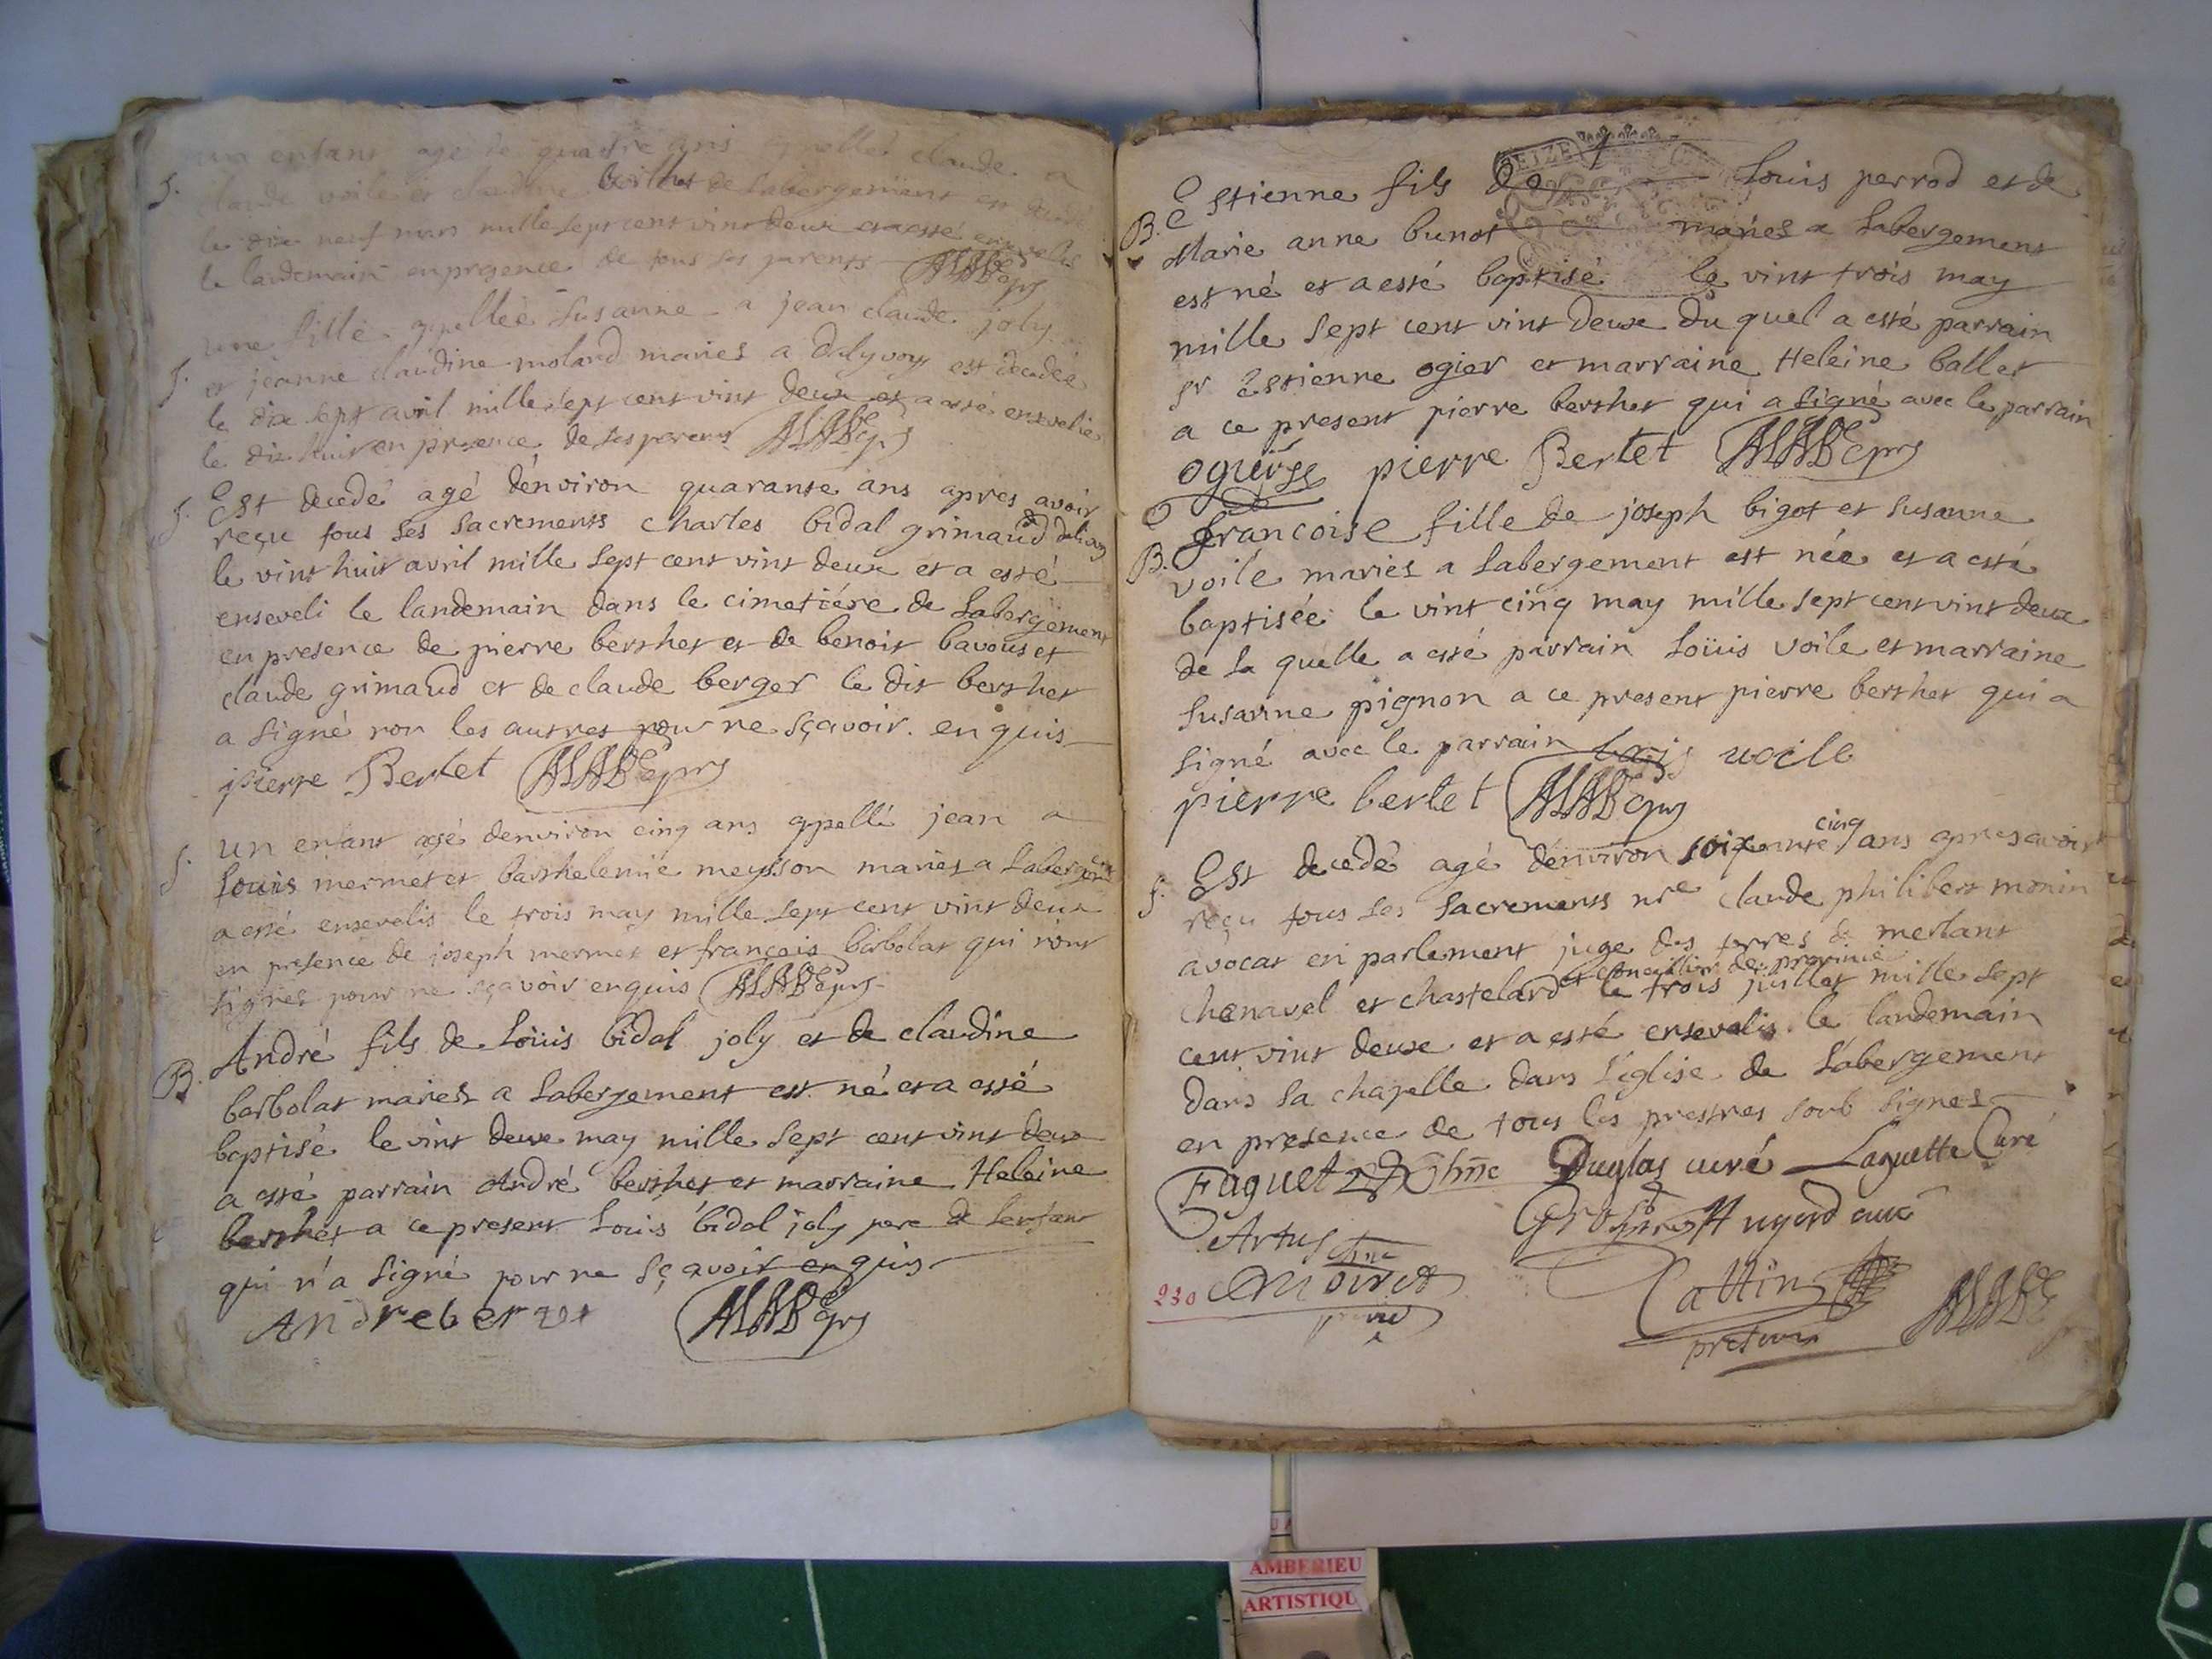 un enfant agé de quatre ans appellé claude a
S. claude voile et claudine de labergement est decedé
le dix neuf mars mille sept cent vint deux et a esté ensevelis
le landemain en presence de tous ses parents
une fille appellée Susanne a jean claude joly
S. et jeanne claudine molard mariés a dalyvoys est decedée
le dix sept avril mille sept cent vint deux et a esté ensevelie
le dix huit en presence de ses parens
S. Est decedé agé d'environ quarante ans apres avoir
reçu tous ses sacrements charles bidal grimaud
le vint huit avril mille sept cent vint deux et a esté
enseveli le landemain dans le cimetiére de Labergement
en presence de pierre berthet et de benoit bavouset
claude grimaud et de claude berger le dit berthet
a signé non les autres pour ne sçavoir enquis
pierre Bertet
S. un enfant agé denviron cinq ans appellé jean a
Louis mermet et barthelemie meysson mariés a Labergemt
a esté ensevelis le trois may mille sept cent vint deux
en presence de joseph mermet et françois barbolat qui n'ont
signes pour ne sçavoir enquis
B. André fils de Loüis bidal joly et de claudine
barbolat mariés a Labergement est né et a esté
baptisé le vint deux may mille sept cent vint deux
a esté parrain André berthet et marraine Heleine
berthet a ce present Louis bidal joly pere de lenfant
qui n'a signé pour ne sçavoir enquis
Andre bertet
B. Estienne fils De Louis perrod et de
Marie anne bunot mariés a Labergement
est né et a esté baptisé le vint trois may
mille sept cent vint deux du quel a esté parrain
sr Estienne ogier et marraine Heleine ballet
a ce present pierre berthet qui a signé avec le parrain
pierre Bertet
B. francoise fille de joseph bigot et susanne
voile mariés a Labergement est née et a esté
baptisée le vint cinq may mille sept cent vint deux
de la quelle a esté parrain Loüis voile et marraine
susanne pignon a ce present pierre berthet qui a
signé avec le parrain Lois uoile
pierre bertet
S. Est decedé agé denviron soixante cinq ans apres avoir
reçu tous ses sacrements mre claude philibert monin
avocat en parlement juge des terres de merlant
chenavel et chastelard et conseillier de province le trois juillet mille sept
cent vint deux et a esté ensevelis le landemain
dans sa chapelle dans l'église de Labergement
en presence de tous les prestres soub signes
Faguet Duglas curé Laguette Curé
Artus Gros
230 Moiret Cattin